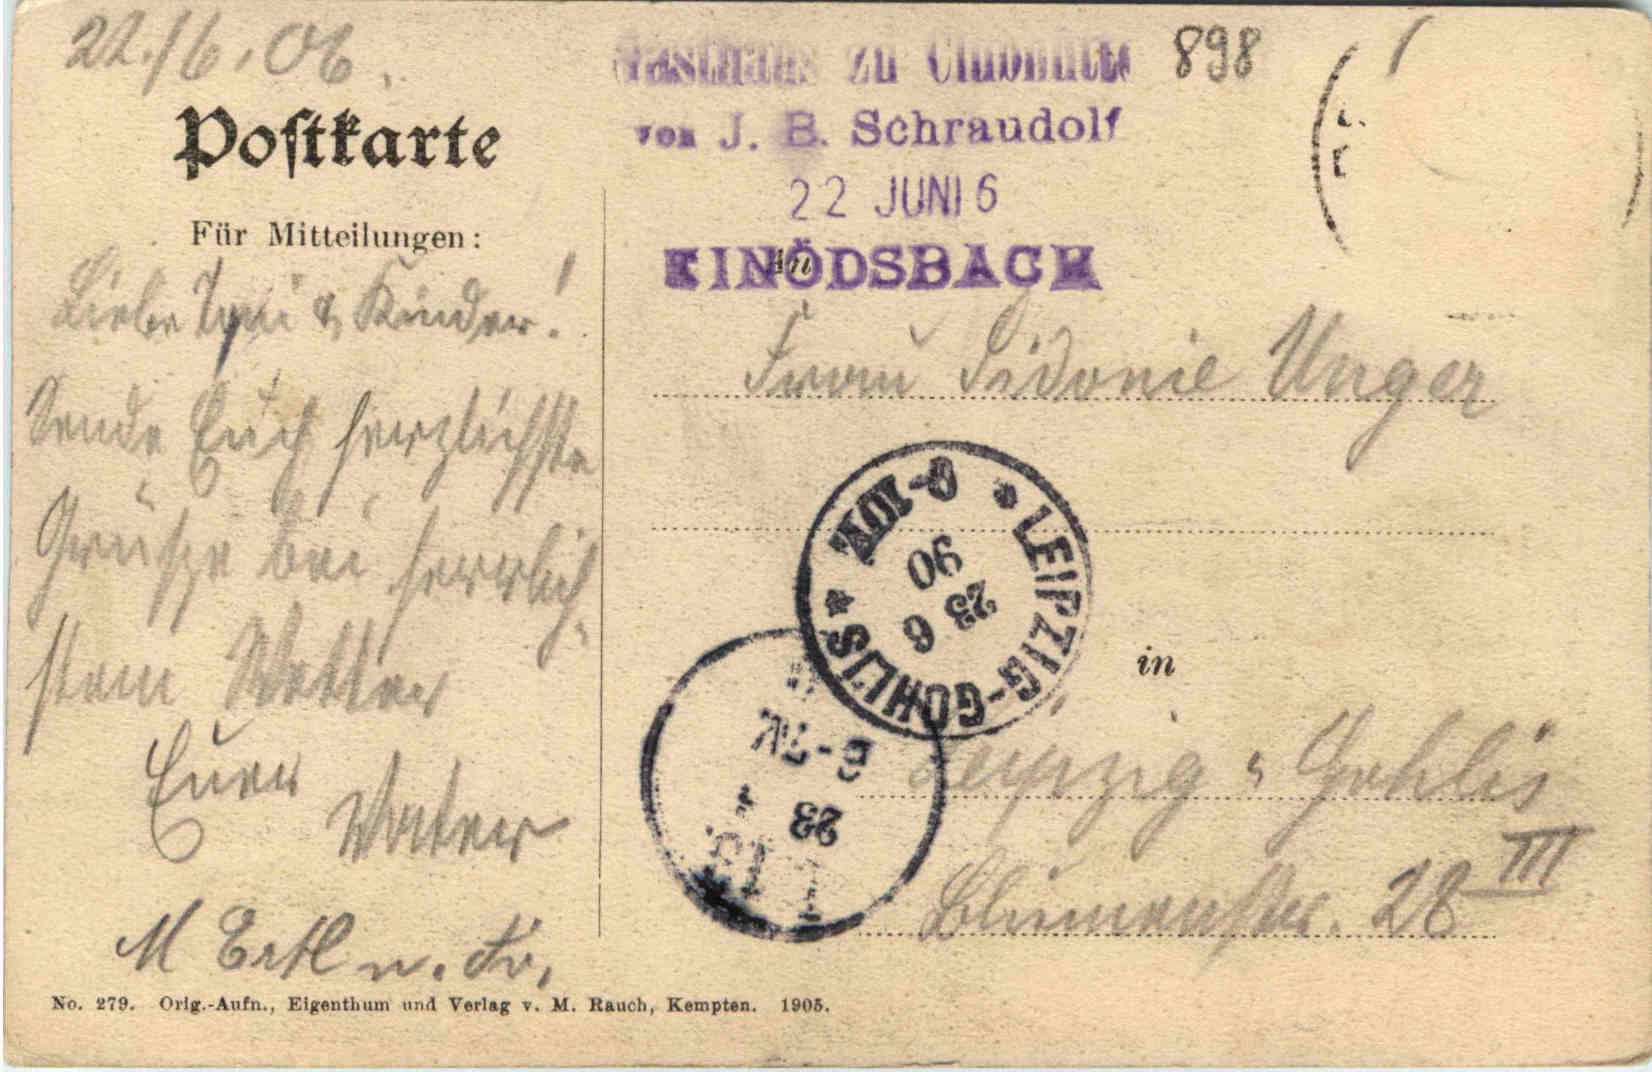 22./6.06.
Postkarte
Für Mitteilungen:
Liebe & Kinder!
Sende Euch herzlichste
Grüße bei herrlich-
stem Wetter
Euer
Vater
M Ertl u. Fr.
No. 279. Orig.-Aufn., Eigenthum und Verlag v. M. Rauch, Kempten. 1905.
Gasthaus zu Clubhütte
von J. B. Schraudolf
22 JUNI 6
EINÖDSBACH
898
An
Frau Sidonie Unger
LEIPZIG-GOHLIS
23 6
06
9-10V.
23
in
Leipzig-Gohlis
Blumenstr. 28 III